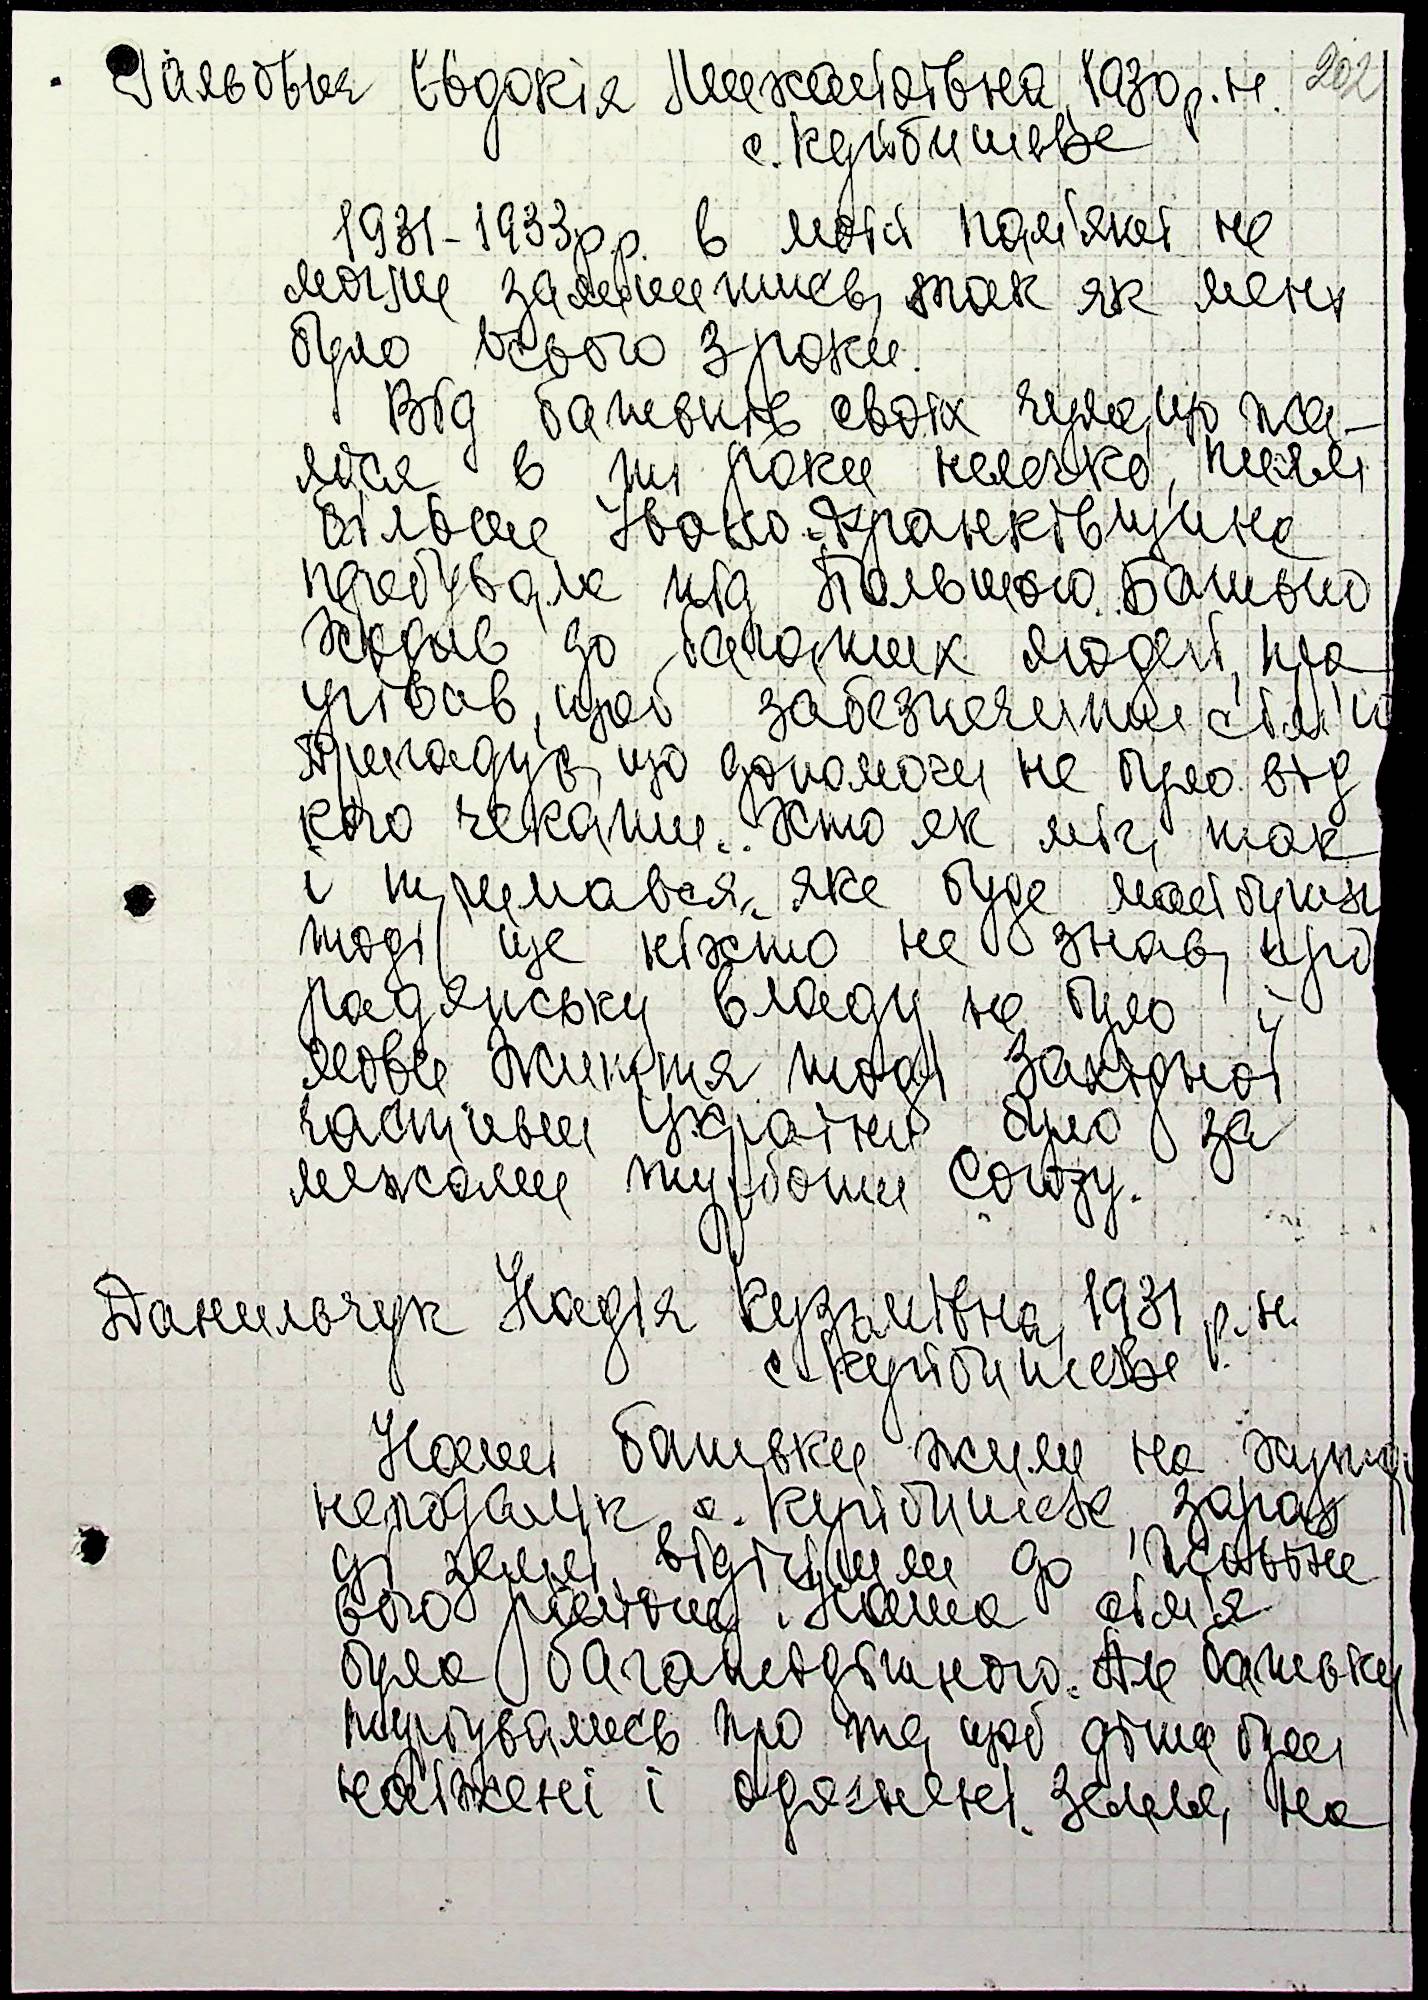 202
Гальовня Євдокія Михайлівна, 1930 р.н.
с. Куйбишеве
1931-1933 р.р. в моїй пам'яті не
могли залишитись, так як мені
було всього 3 роки.
Від батьків своїх чула, що жи-
лося в ті роки нелегко, тим
більше Івано-Франківщина
перебувала під Польщою. Батько
ходив до багатих людей, пра
цював, щоб забезпечити сім'ю
Пригадує, що допомоги не було від
кого чекати. Хто як міг, так
і тримався, яке буде майбутнє
тоді ще ніхто не знав, про
радянську владу не було і
мови життя тоді Західної
частини України було за
межами турботи Союзу.
Данильчук Надія Кузьмівна, 1931 р.н.
с. Куйбишеве
Наші батьки жили на хуторі
неподалік с. Куйбишеве, зараз
ці землі відійшли до
вого району. Наша сім'я
була багатодітною. Але батьки
турбувались про те, щоб діти були
наїжені і одягнені. Земля, на